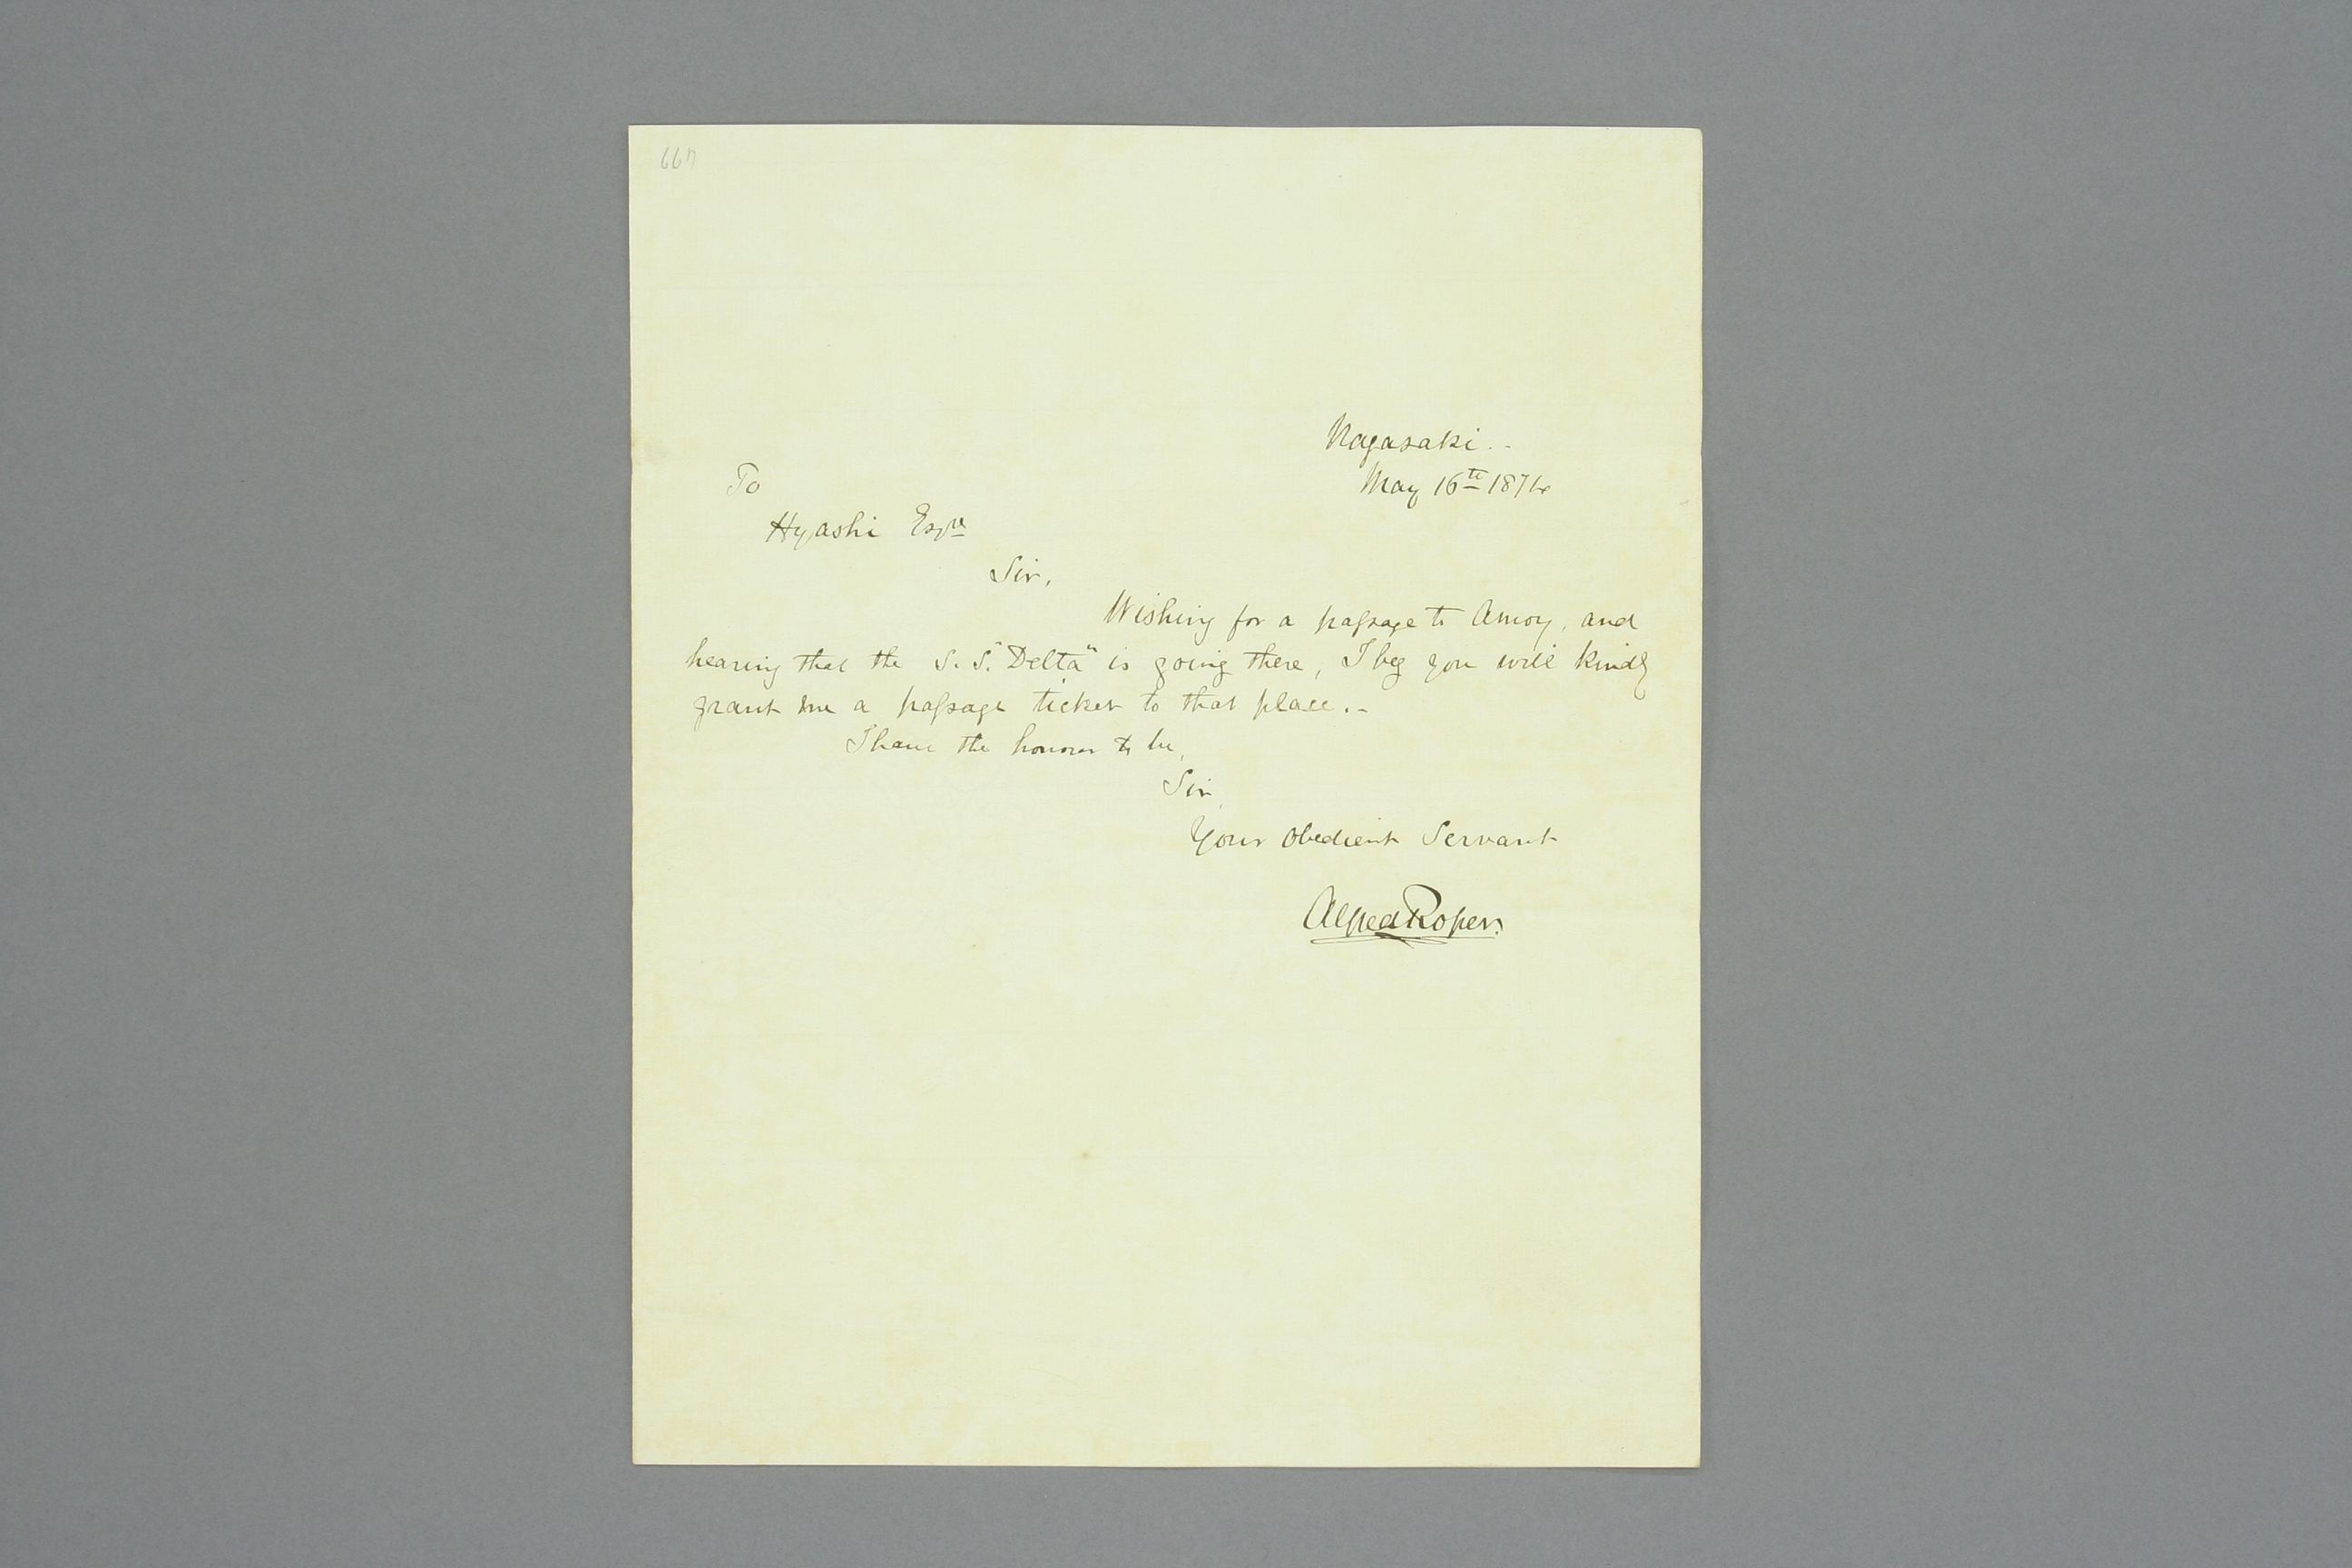 667
Nagasaki. -
To
May 16th 1874
Hyashi Esqre
Sir,
Wishing for a passage to Amoy, and
hearing that the S. S. "Delta" is going there, I beg you will kindly
grant me a passage ticket to that place. -
I have the honour to be,
Sir,
Your Obedient Servant
Alfred Roper.